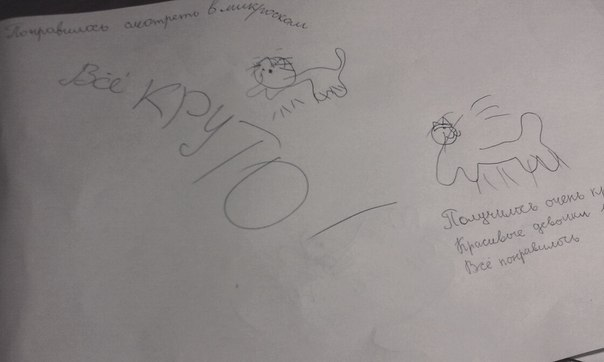 Понравилось смотреть в микроскоп
Всё КРУТО
Получилось очень
Красивые девочки
Всё понравилось